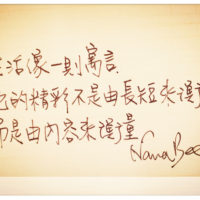 生活像一則寓言,
它的精彩不是由長短來評量
而是由內容來評量
Nana Bee